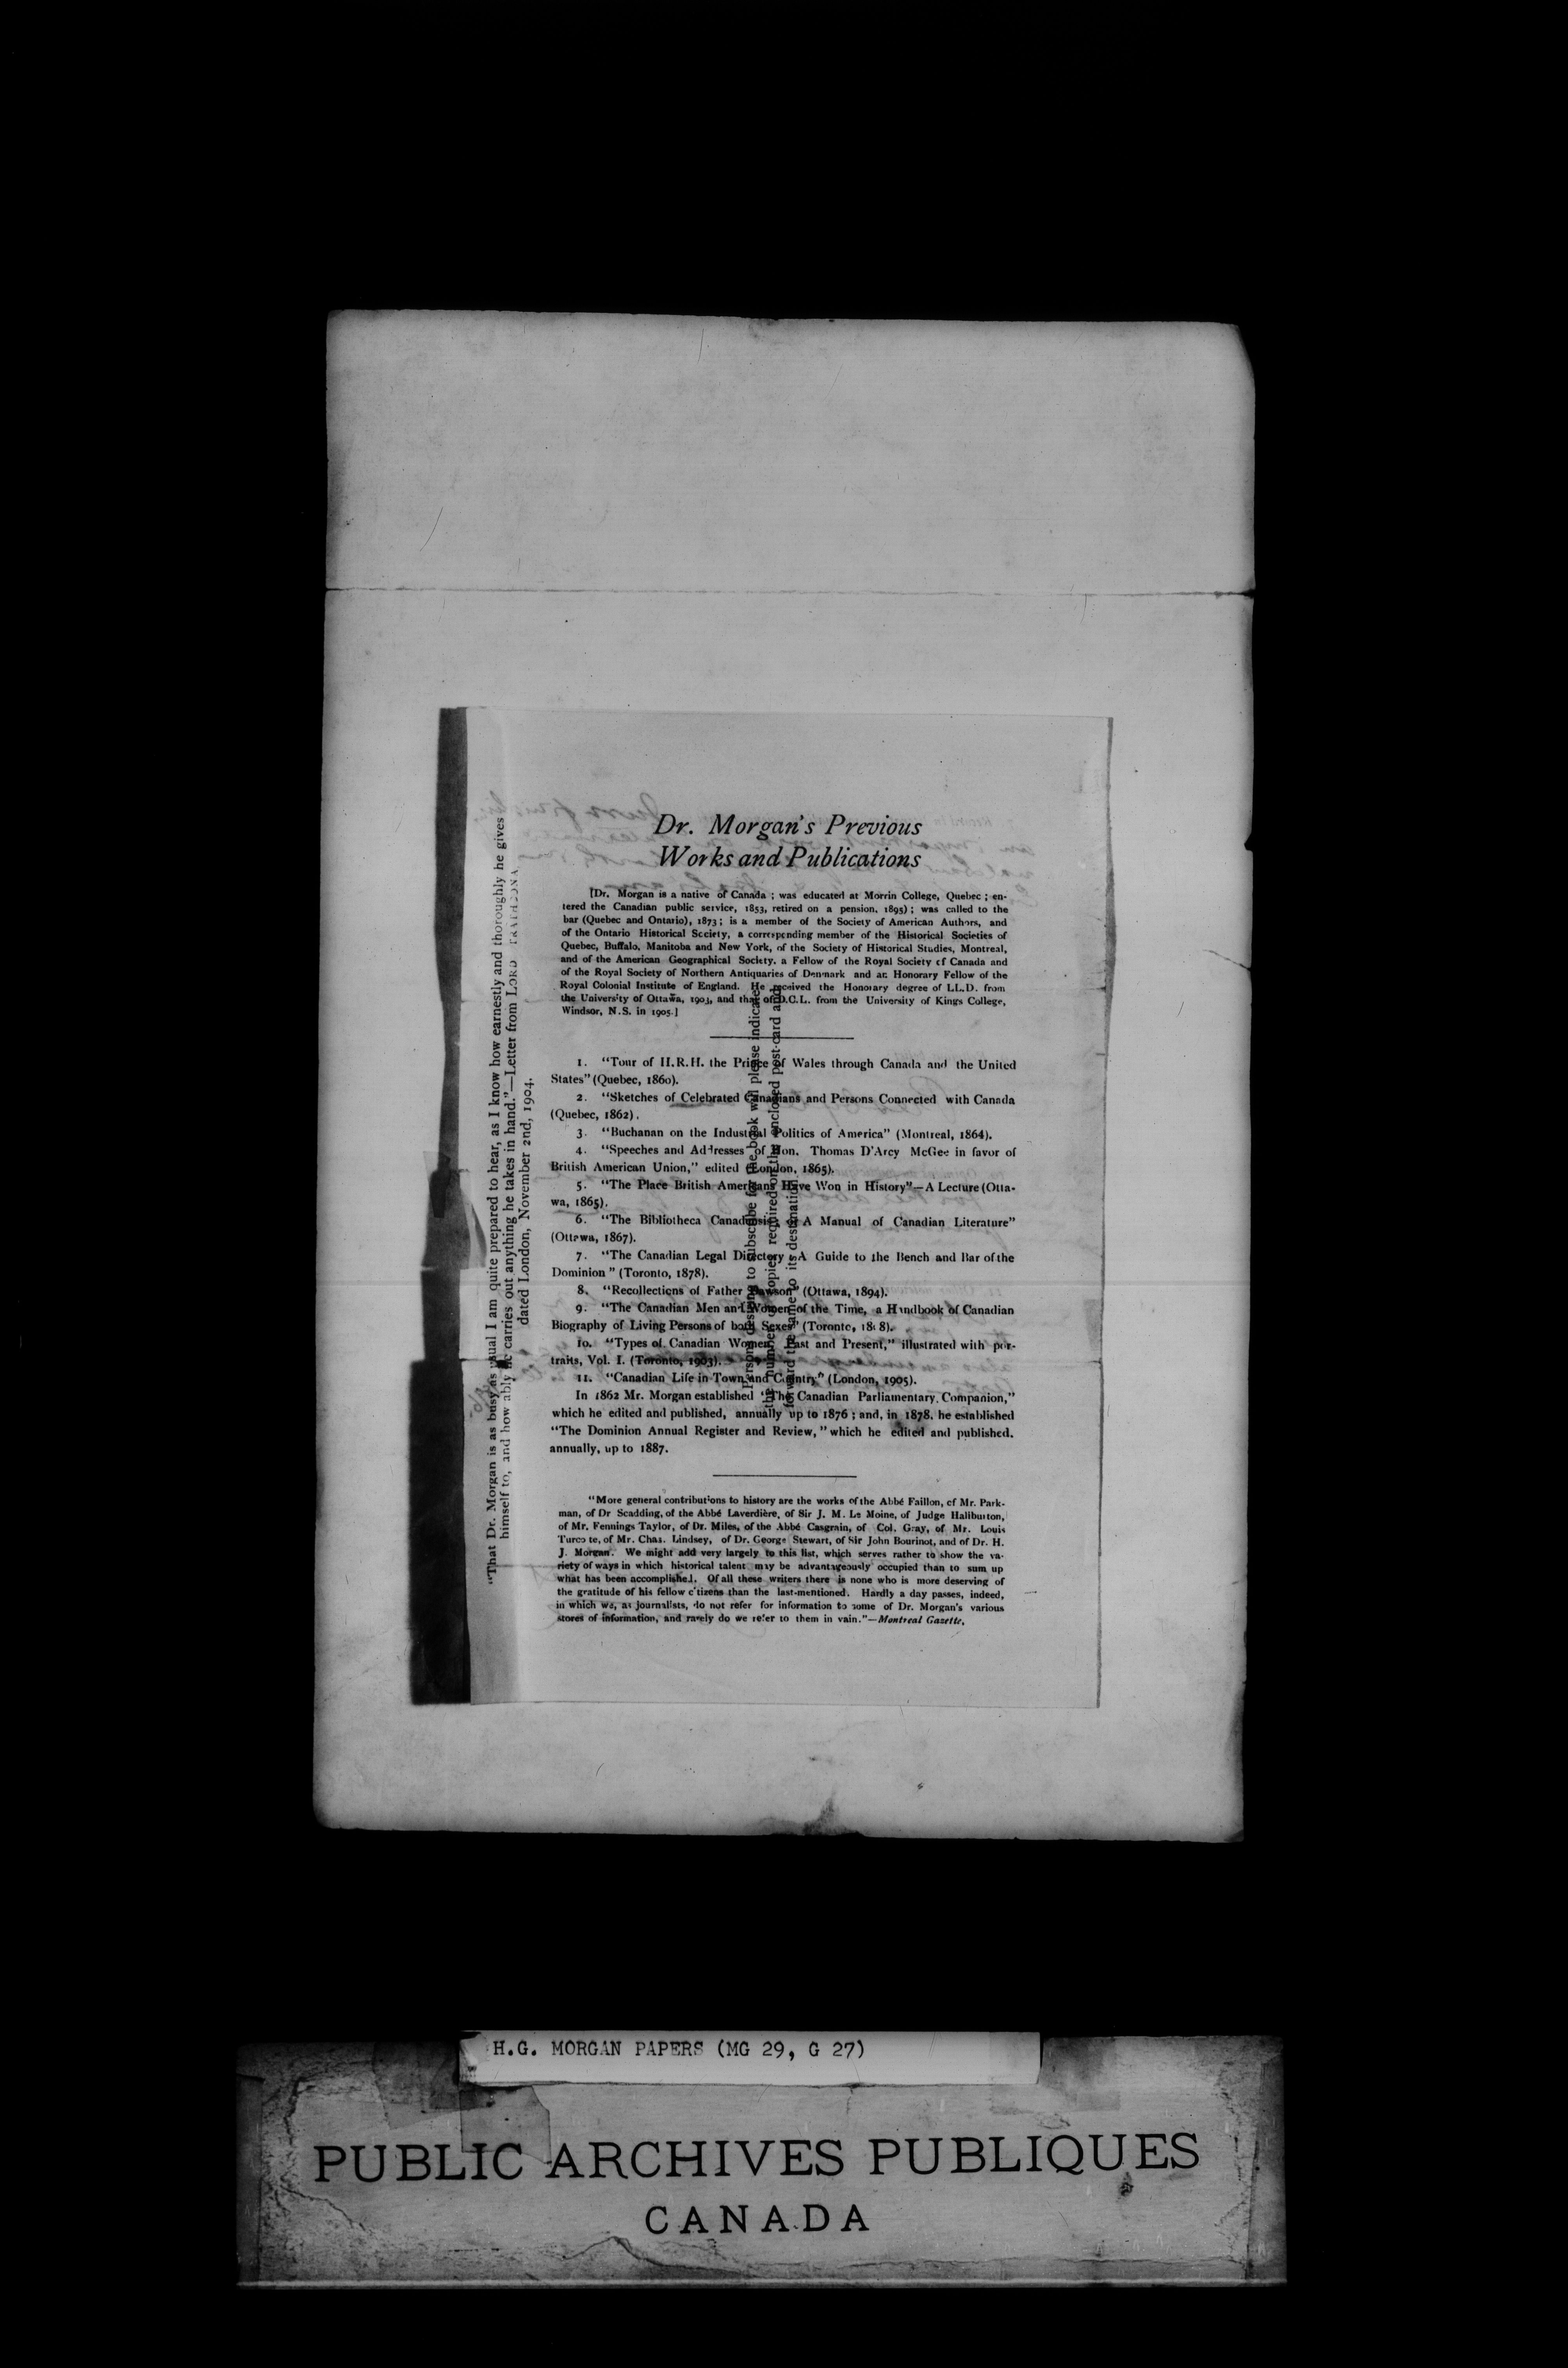 Dr. Morgan's Previous
Works and Publications
[Dr. Morgan is a native of Canada ; was educated at Morrin College, Quebec ; en-
tered the Canadian public service, 1853, retired on a pension, 1895) ; was called to the
bar (Quebec and Ontario), 1873 ; is a member of the Society of American Authors, and
of the Ontario Historical Society, a corresponding member of the Historical Societies of
Quebec, Buffalo, Manitoba and New York, of the Society of Historical Studies, Montreal,
and of the American Geographical Society, a Fellow of the Royal Society of Canada and
of the Royal Society of Northern Antiquaries of Denmark and an Honorary Fellow of the
Royal Colonial Institute of England. He received the Honorary degree of LL.D. from
the University of Ottawa, 1903, and that of D.C.L. from the University of Kings College,
Windsor, N.S. in 1905.]
1. "Tour of H.R.H. the Prince of Wales through Canada and the United
States" (Quebec, 1860).
2. "Sketches of Celebrated Canadians and Persons Connected with Canada
(Quebec, 1862).
3. "Buchanan on the Industrial Politics of America" (Montreal, 1864).
4. "Speeches and Addresses of Hon. Thomas D'Arcy McGee in favor of
British American Union," edited (London, 1865).
5. "The Place British Americans Have Won in History"—A Lecture (Otta-
wa, 1865).
6. "The Bibliotheca Canadensis, or A Manual of Canadian Literature"
(Ottawa, 1867).
7. "The Canadian Legal Directory A Guide to the Bench and Bar of the
Dominion" (Toronto, 1878).
8. "Recollections of Father Dawson" (Ottawa, 1894).
9. "The Canadian Men and Women of the Time, a Handbook of Canadian
Biography of Living Persons of both Sexes" (Toronto, 1898).
10. "Types of Canadian Women, Past and Present," illustrated with por-
traits, Vol. I. (Toronto, 1903).
11. "Canadian Life in Town and Country" (London, 1905).
In 1862 Mr. Morgan established "The Canadian Parliamentary Companion,"
which he edited and published, annually up to 1876 ; and, in 1878, he established
"The Dominion Annual Register and Review," which he edited and published.
annually, up to 1887.
"More general contributions to history are the works of the Abbé Faillon, of Mr. Park-
man, of Dr Scadding, of the Abbé Laverdière, of Sir J. M. Le Moine, of Judge Haliburton,
of Mr. Fennings Taylor, of Dr. Miles, of the Abbé Casgrain, of Col. Gray, of Mr. Louis
Turcotte, of Mr. Chas. Lindsey, of Dr. George Stewart, of Sir John Bourinot, and of Dr. H.
J. Morgan. We might add very largely to this list, which serves rather to show the va-
riety of ways in which historical talent may be advantageously occupied than to sum up
what has been accomplished. Of all these writers there is none who is more deserving of
the gratitude of his fellow citizens than the last-mentioned. Hardly a day passes, indeed,
in which we, as journalists, do not refer for information to some of Dr. Morgan's various
stores of information, and rarely do we refer to them in vain."—Montreal Gazette.
"That Dr. Morgan is as busy as usual I am quite prepared to hear, as I know how earnestly and thoroughly he gives
himself to, and how ably he carries out anything he takes in hand."—Letter from LORD STRATHCONA,
dated London, November 2nd, 1904.
Persons desiring to subscribe for the book will please indicate
the number of copies required on the enclosed post-card and
forward the same to its destination.
H.G. MORGAN PAPERS (MG 29, G 27)
PUBLIC ARCHIVES PUBLIQUES
CANADA